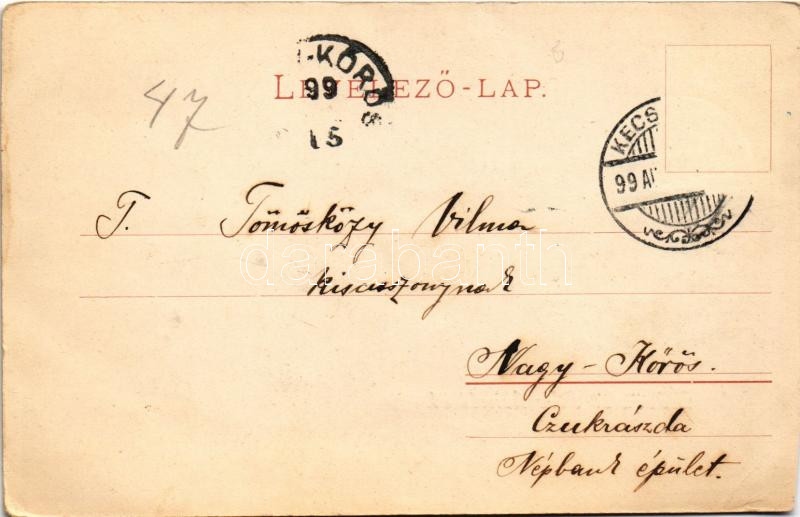 47
-KŐRÖS
99
15
LEVELEZŐ-LAP.
KECS
99 AU
T. Tömösközy Vilma
kisasszonynak
Nagy-Kőrös.
Czukrászda
Népbank épület.
darabanth